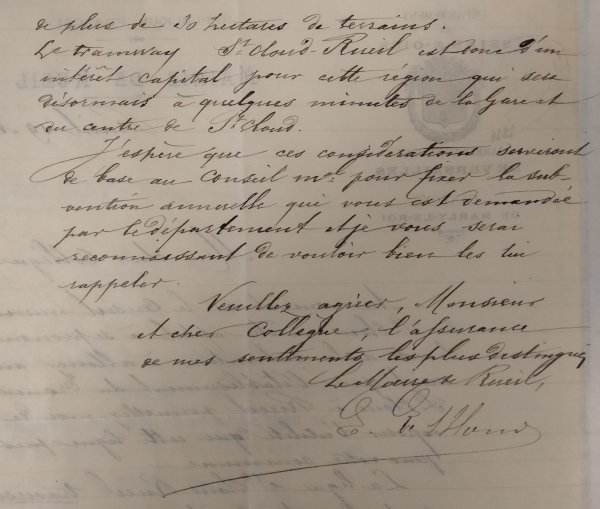 de plus de 30 hectares de terrains.
Le tramway St Cloud-Rueil est donc d'un
intérêt capital pour cette région qui sera
désormais à quelques minutes de la Gare et
du centre de St Cloud.
J'espère que ces considérations serviront
de base au Conseil mal pour fixer la sub-
vention annuelle qui vous est demandée
par le département et je vous serai
reconnaissant de vouloir bien les lui
rappeler.
Veuillez agréer, Monsieur
et cher Collègue, l'assurance
de mes sentiments les plus distingués
Le Maire de Rueil,